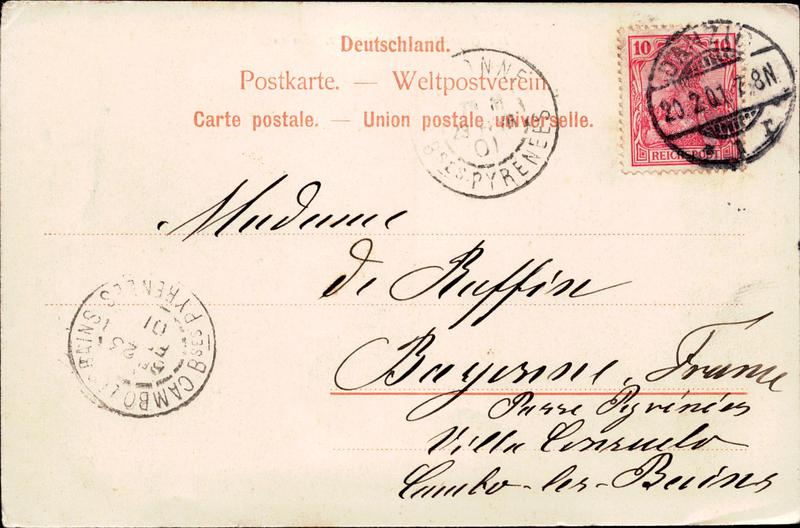 Deutschland.
Postkarte. — Weltpostverein.
Carte postale. — Union postale universelle.
10 10
REICHSPOST
DANZIG
20.2.01. 7-8N.
ONNE
01
BSES-PYRENEES
Madame
de Ruffin
Bayonne, France
Basses Pyrénées
Villa Consuelo
Cambo-les-Bains
CAMBO-LES-BAINS
BSES-PYRENEES
23
01